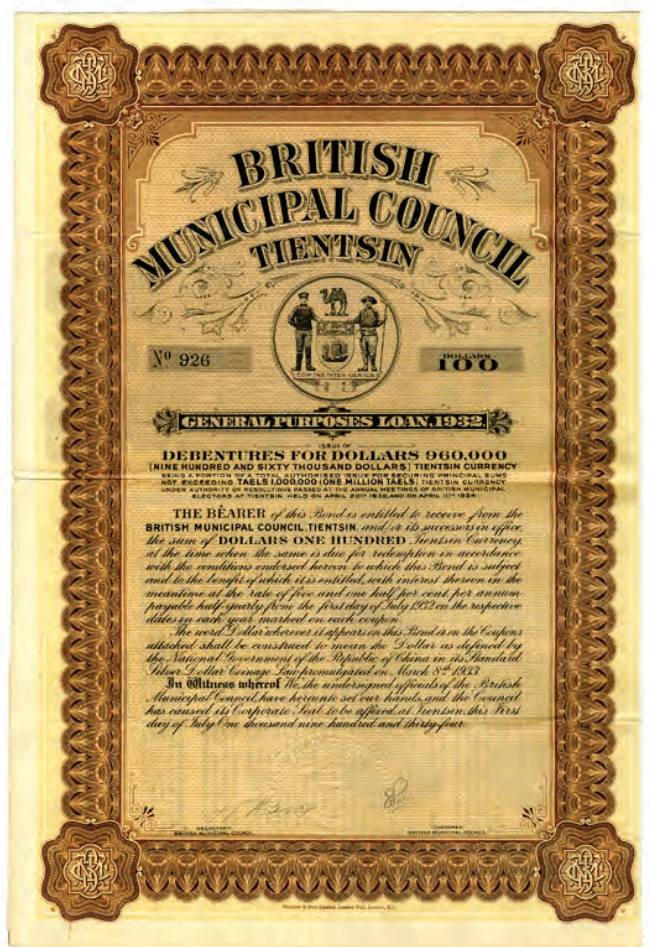 BRITISH
MUNICIPAL COUNCIL
TIENTSIN
Nº 926
DOLLARS
100
GENERAL PURPOSES LOAN, 1932.
ISSUE OF
DEBENTURES FOR DOLLARS 960,000
(NINE HUNDRED AND SIXTY THOUSAND DOLLARS) TIENTSIN CURRENCY
BEING A PORTION OF A TOTAL AUTHORISED ISSUE FOR SECURING PRINCIPAL SUMS
NOT EXCEEDING TAELS 1,000,000 (ONE MILLION TAELS) TIENTSIN CURRENCY
UNDER AUTHORITY OF RESOLUTIONS PASSED AT THE ANNUAL MEETINGS OF BRITISH MUNICIPAL
ELECTORS AT TIENTSIN HELD ON APRIL 20TH 1932, AND ON APRIL 11TH 1934
THE BEARER of this Bond is entitled to receive from the
BRITISH MUNICIPAL COUNCIL, TIENTSIN, and/or its successors in office,
the sum of DOLLARS ONE HUNDRED Tientsin Currency,
at the time when the same is due for redemption in accordance
with the conditions endorsed hereon to which this Bond is subject
and to the benefit of which it is entitled, with interest thereon in the
meantime at the rate of five and one half per cent. per annum
payable half-yearly from the first day of July 1932 on the respective
dates in each year marked on each coupon.
The word Dollar wherever it appears on this Bond or on the Coupons
attached shall be construed to mean the Dollar as defined by
the National Government of the Republic of China in its Standard
Silver Dollar Coinage Law promulgated on March 8th 1933.
In Witness whereof We, the undersigned officials of the British
Municipal Council, have hereunto set our hands, and the Council
has caused its Corporate Seal to be affixed, at Tientsin, this First
day of July One thousand nine hundred and thirty-four.
SECRETARY,
BRITISH MUNICIPAL COUNCIL
CHAIRMAN,
BRITISH MUNICIPAL COUNCIL